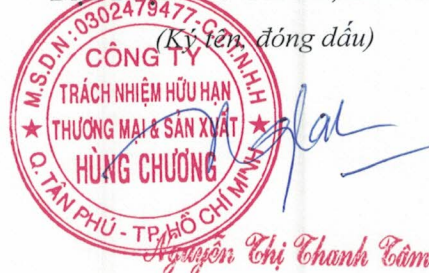 (Ký tên, đóng dấu)
M.S.D.N: 0302479477-C.T.T.N.H.H
CÔNG TY
TRÁCH NHIỆM HỮU HẠN
THƯƠNG MẠI & SẢN XUẤT
HÙNG CHƯƠNG
Q. TÂN PHÚ - TP. HỒ CHÍ MINH
Nguyễn Thị Thanh Tâm